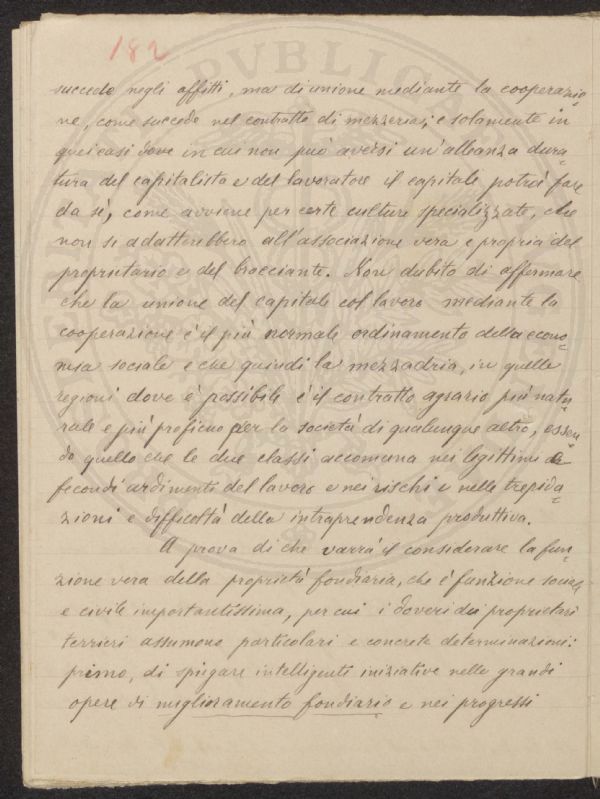 182
succede negli affitti, ma di unione mediante la cooperazio
ne, come succede nel contratto di mezzeria; e solamente in
quei casi dove in cui non può aversi un'alleanza dura-
tura del capitalista e del lavoratore il capitale potrà fare
da sè, come avviene per certe culture specializzate, che
non si adatterebbero all'associazione vera e propria del
proprietario e del bracciante. Non dubito di affermare
che la unione del capitale col lavoro mediante la
cooperazione è il più normale ordinamento della econo-
mia sociale e che quindi la mezzadria, in quelle
regioni dove è possibile è il contratto agrario più natu-
rale e più proficuo per la società di qualunque altro, essen-
do quello che le due classi accomuna nei legittimi e
fecondi ardimenti del lavoro e nei rischi e nelle trepida-
zioni e difficoltà della intraprendenza produttiva.
A prova di che varrà il considerare la fun-
zione vera della proprietà fondiaria, che è funzione sociale
e civile importantissima, per cui i doveri dei proprietari
terrieri assumono particolari e concrete determinazioni:
primo, di spiegare intelligenti iniziative nelle grandi
opere di miglioramento fondiario e nei progressi